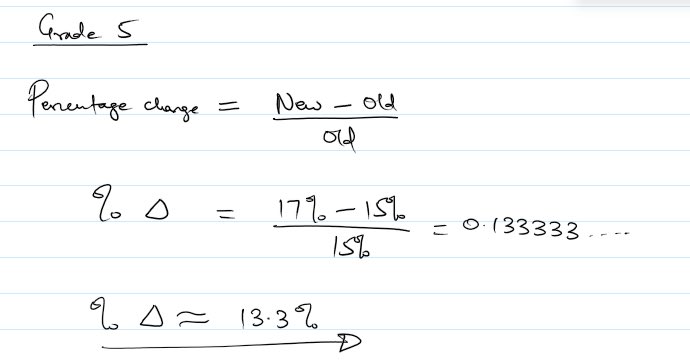 Grade 5
Percentage change = New - old / old
% Δ = 17% - 15% / 15% = 0.133333.....
% Δ ≈ 13.3%